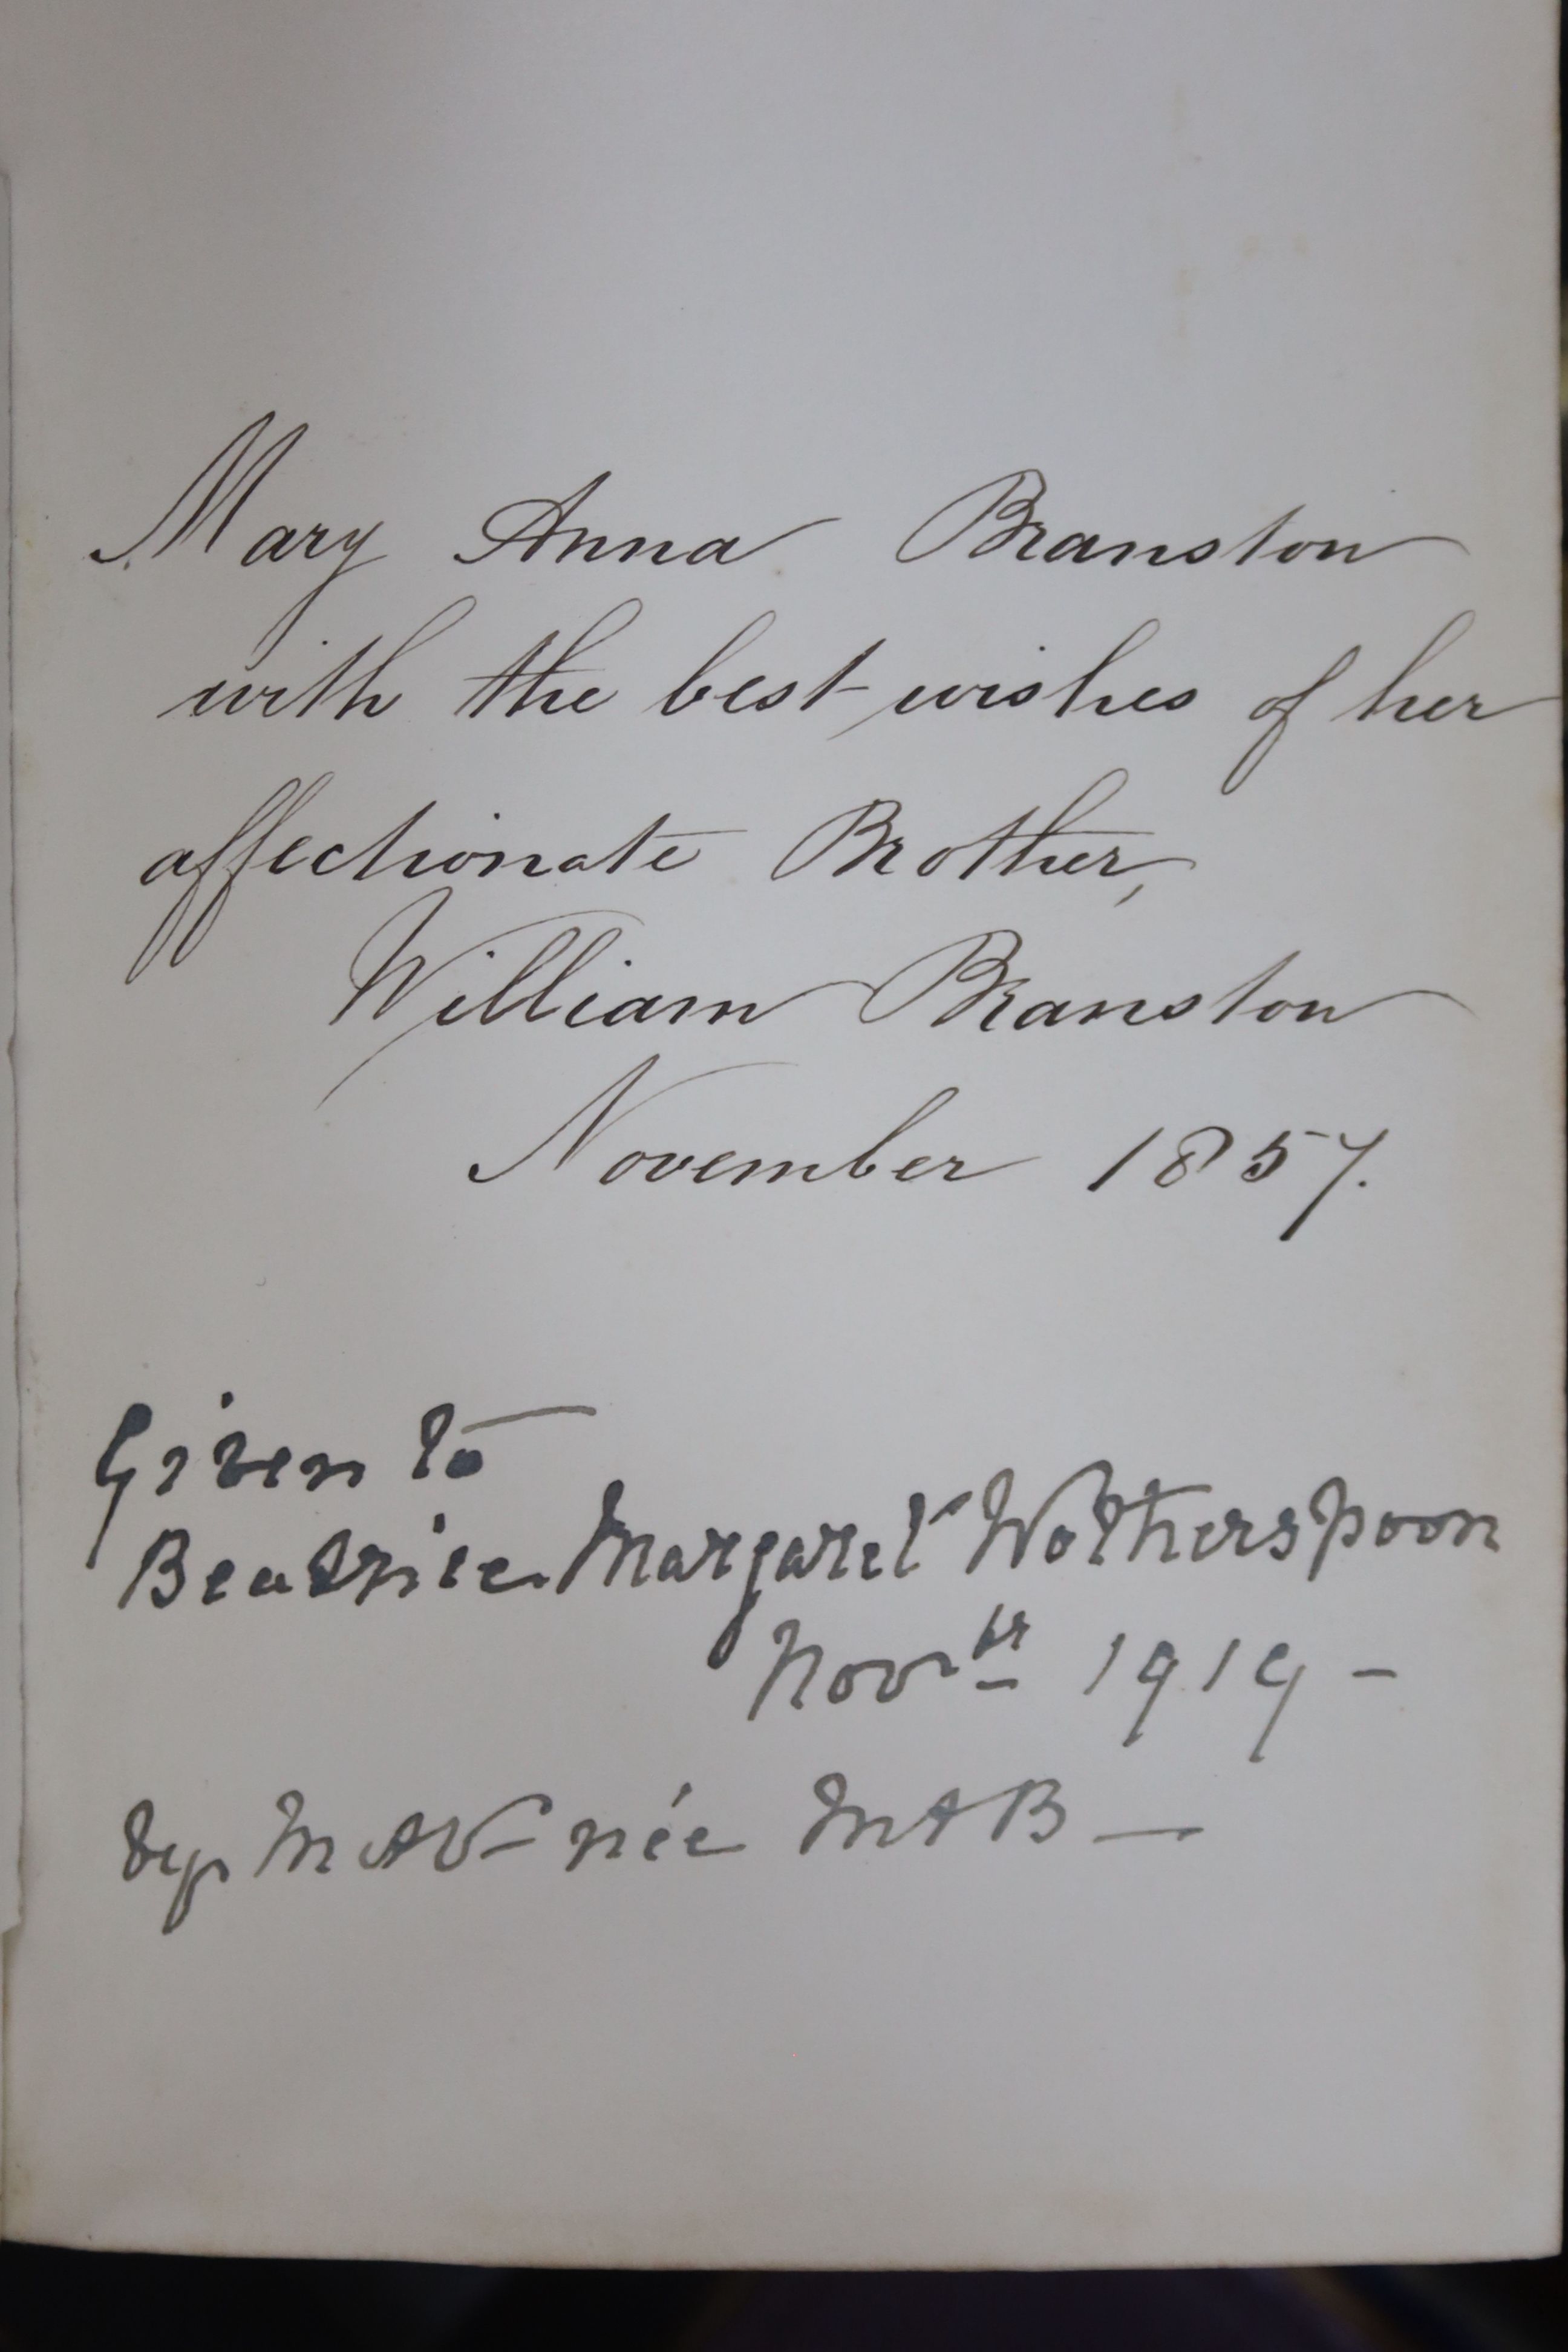 Mary Anna Branston
with the best wishes of her
affectionate Brother,
William Branston
November 1857.
Given to
Beatrice Margaret Wotherspoon
Novbr 1919 -
by MAV née MAB —